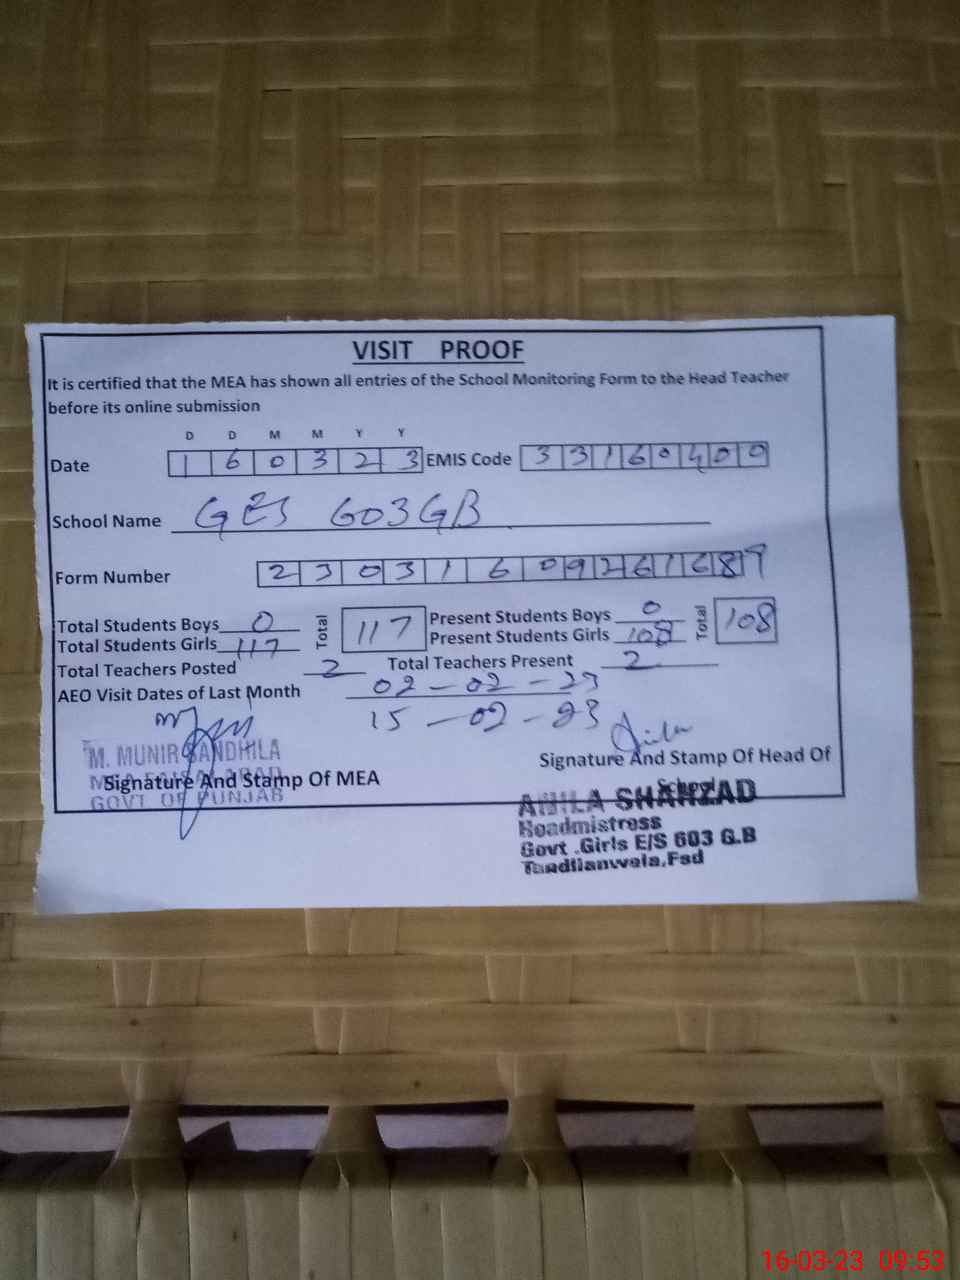 VISIT PROOF
It is certified that the MEA has shown all entries of the School Monitoring Form to the Head Teacher
before its online submission
D D M M Y Y
Date 1 6 0 3 2 3 EMIS Code 3 3 1 6 0 4 0 0
School Name GES 603GB
Form Number 2 3 0 3 1 6 0 9 2 6 1 6 8 9
Total Students Boys 0 Total 117 Present Students Boys 0 Total 108
Total Students Girls 117 Present Students Girls 108
Total Teachers Posted 2 Total Teachers Present 2
AEO Visit Dates of Last Month 02-02-23
15-02-23
M. MUNIR SANDHILA
Signature And Stamp Of MEA
GOVT OF PUNJAB
Signature And Stamp Of Head Of
School
ANILA SHAHZAD
Headmistress
Govt .Girls E/S 603 G.B
Tandlianwala,Fsd
16-03-23 09:53